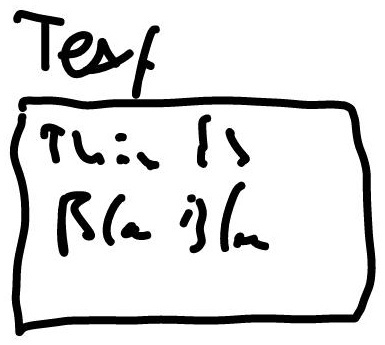 Test
This Is
Bla Bla